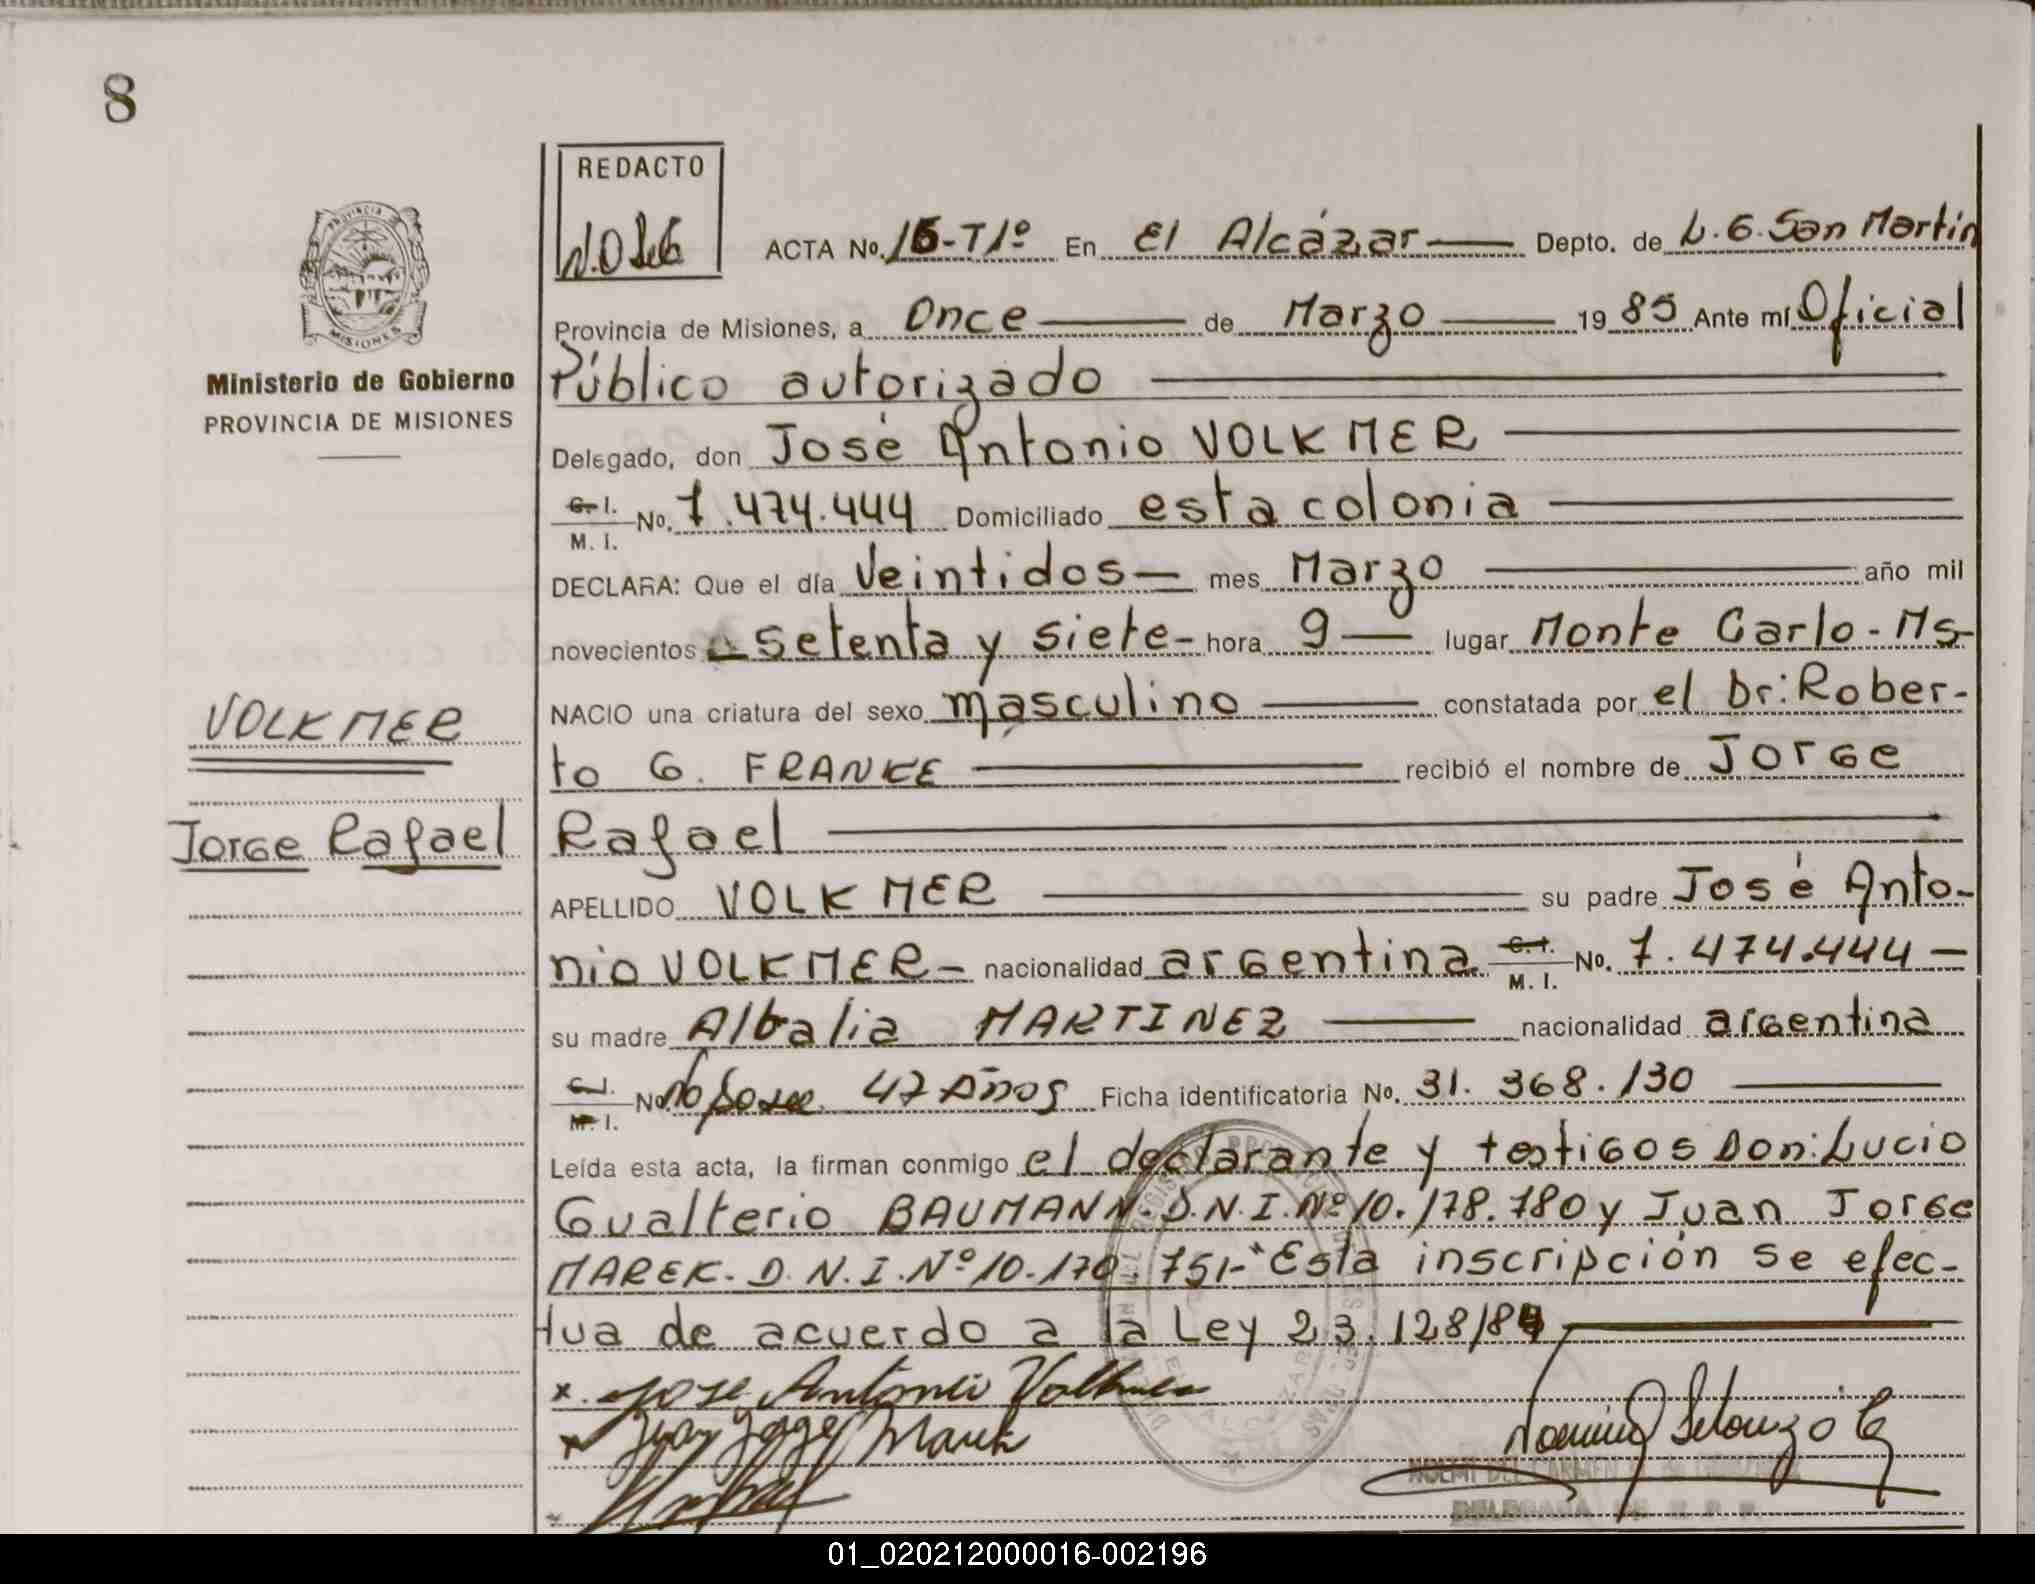 8
REDACTO
PROVINCIA
MISIONES
Ministerio de Gobierno
PROVINCIA DE MISIONES
ACTA No. 15-T1º En El Alcázar Depto. de L.G.San Martín
Provincia de Misiones, a Once de Marzo 1985 Ante mí Oficial
Público autorizado
Delegado, don José Antonio VOLKMER
C. I. M. I. No. 7.474.444 Domiciliado esta colonia
DECLARA: Que el día Veintidos mes Marzo año mil
novecientos setenta y siete- hora 9 lugar Monte Carlo-Ms-
NACIO una criatura del sexo masculino constatada por el Dr: Rober-
to G. FRANKE recibió el nombre de Jorge
Rafael
VOLKMER
Jorge Rafael
APELLIDO VOLKMER su padre José Anto-
nio VOLKMER- nacionalidad argentina C. I. M. I. No. 7.474.444-
su madre Albalia MARTINEZ nacionalidad argentina
C. I. M. I. No. no posee. 47 Años Ficha identificatoria No. 31.368.130
Leída esta acta, la firman conmigo el declarante y testigos Don: Lucio
Gualterio BAUMANN. D.N.I.Nº10.178.780 y Juan Jorge
MAREK. D.N.I.Nº10.170.751- Esta inscripción se efec-
tua de acuerdo a la Ley 23.128/84
x. Jose Antonio Volkmer
x Juan Jorge Marek
NOEMI DEL CARMEN
DELEGADA
01_020212000016-002196